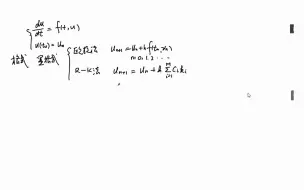 du/dt = f(t, u)
u(t₀) = u₀
格式 显格式 { 欧拉法 uₙ₊₁ = uₙ + h f(tₙ, uₙ)
n = 0, 1, 2 ...
R-K法 uₙ₊₁ = uₙ + h Σ cᵢkᵢ